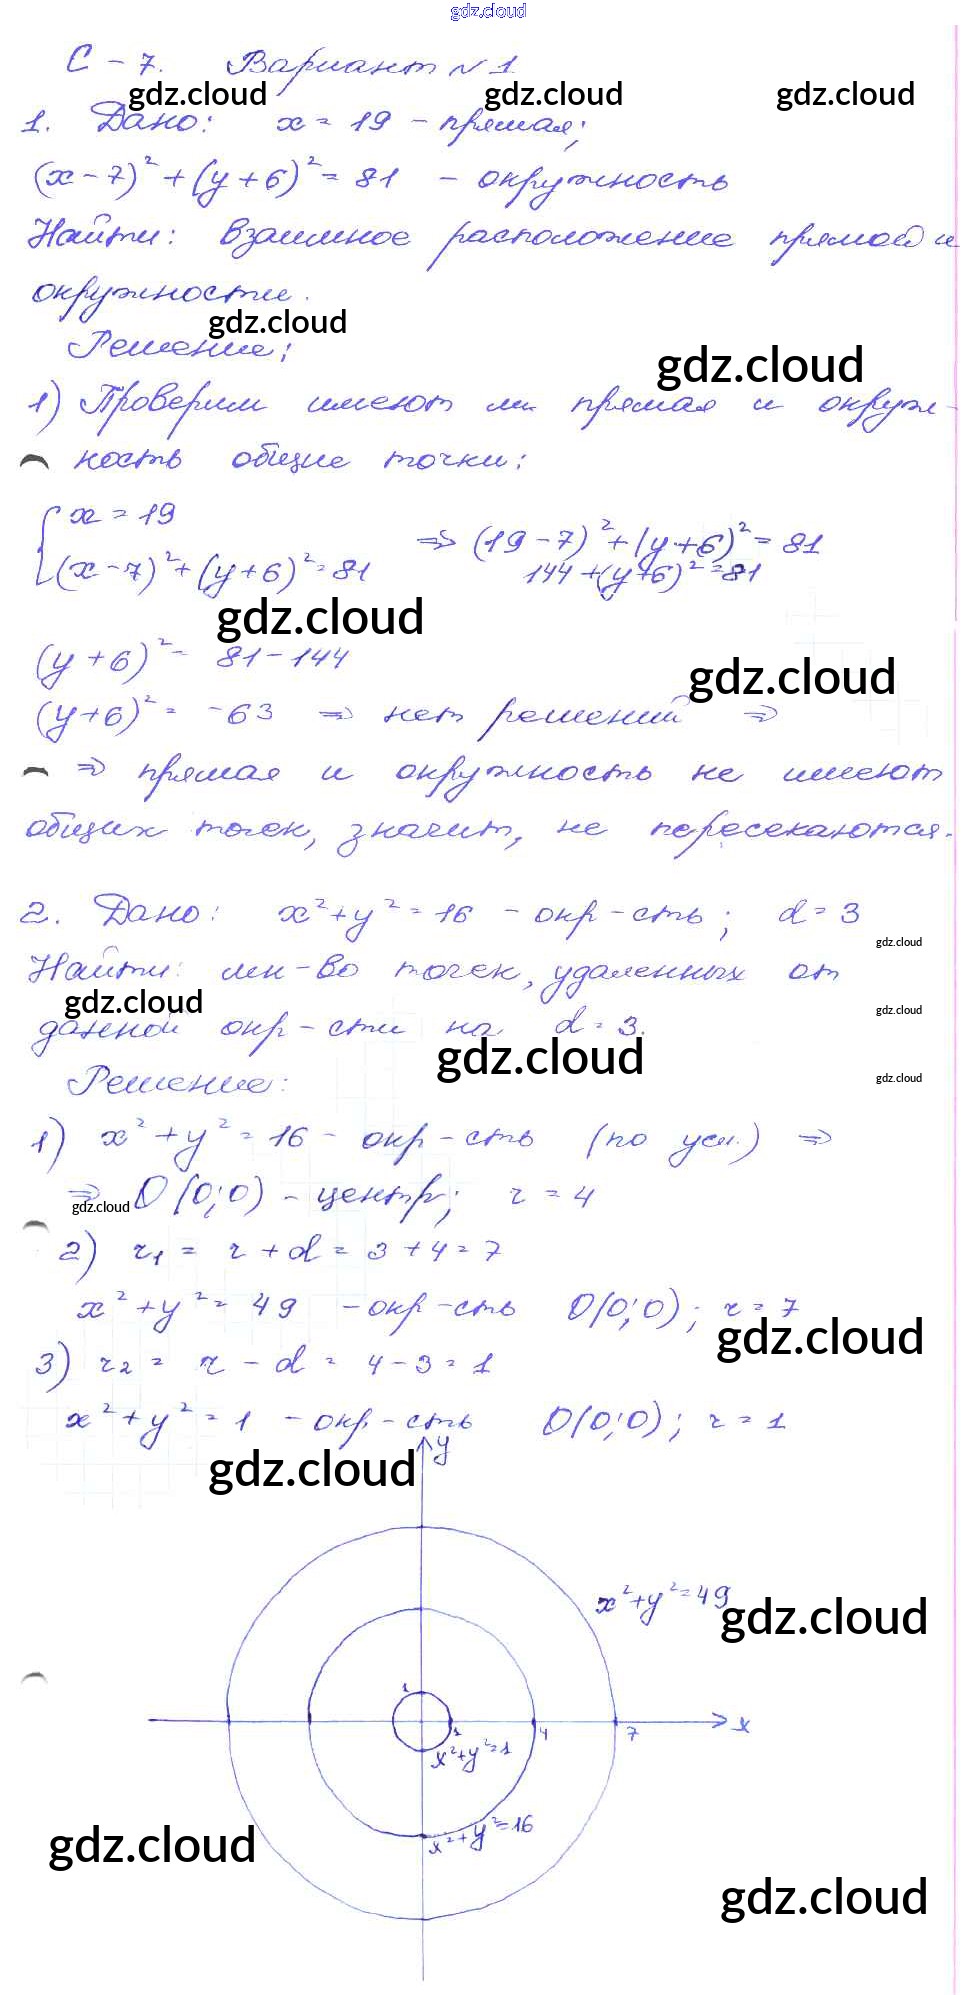 gdz.cloud
С – 7. Вариант № 1
gdz.cloud gdz.cloud gdz.cloud
1. Дано: x = 19 – прямая;
(x – 7)² + (y + 6)² = 81 – окружность
Найти: взаимное расположение прямой и
окружности.
gdz.cloud
Решение:
gdz.cloud
1) Проверим имеют ли прямая и окруж-
ность общие точки:
{ x = 19
(x – 7)² + (y + 6)² = 81 ⇒ (19 – 7)² + (y + 6)² = 81
144 + (y + 6)² = 81
gdz.cloud
(y + 6)² = 81 – 144
gdz.cloud
(y + 6)² = –63 ⇒ нет решений ⇒
⇒ прямая и окружность не имеют
общих точек, значит, не пересекаются.
2. Дано: x² + y² = 16 – окр-сть; d = 3
gdz.cloud
Найти: мн-во точек, удаленных от
gdz.cloud gdz.cloud
данной окр-сти на d = 3.
gdz.cloud
Решение:
gdz.cloud
1) x² + y² = 16 – окр-сть (по усл.) ⇒
⇒ O(0;0) – центр; r = 4
gdz.cloud
2) r₁ = r + d = 3 + 4 = 7
x² + y² = 49 – окр-сть O(0;0); r = 7
gdz.cloud
3) r₂ = r – d = 4 – 3 = 1
x² + y² = 1 – окр-сть O(0;0); r = 1
y
gdz.cloud
x² + y² = 49
gdz.cloud
1
1 4 7 x
x² + y² = 1
x² + y² = 16
gdz.cloud
gdz.cloud